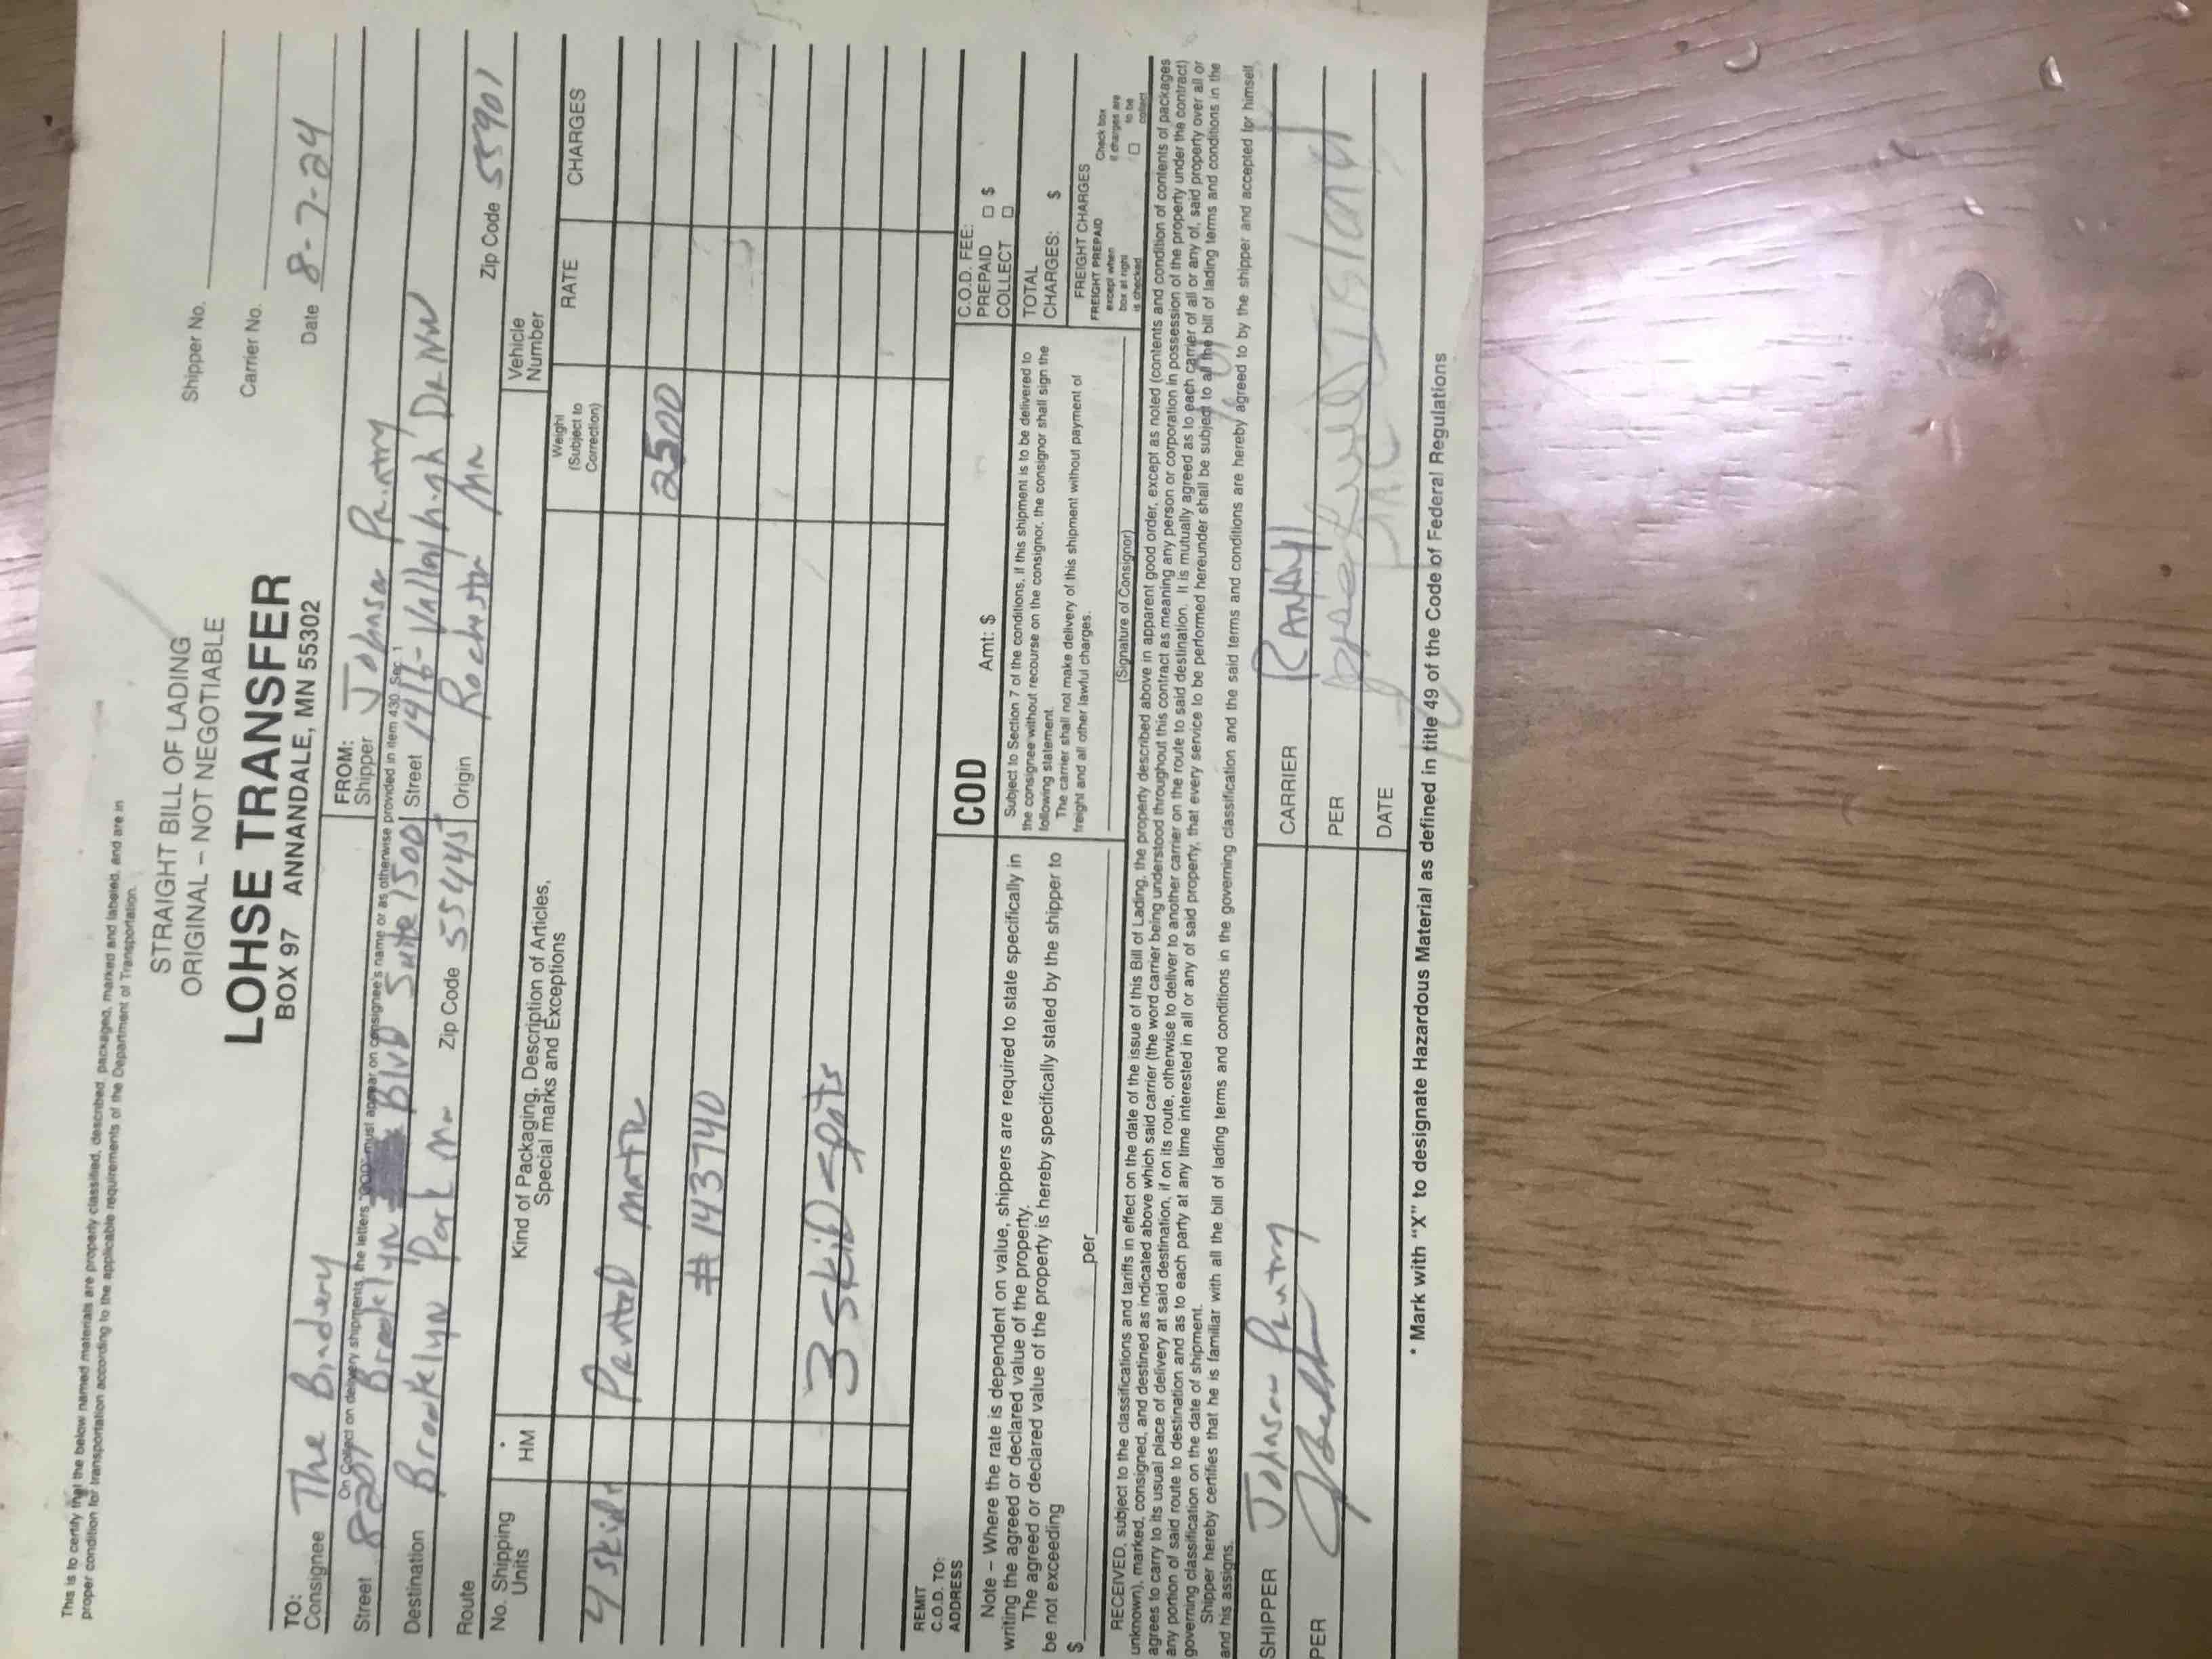 This is to certify that the below named materials are properly classified, described, packaged, marked and labeled, and are in
proper condition for transportation according to the applicable requirements of the Department of Transportation.
STRAIGHT BILL OF LADING
ORIGINAL – NOT NEGOTIABLE
Shipper No.
LOHSE TRANSFER
Carrier No.
BOX 97 ANNANDALE, MN 55302
Date 8-7-24
TO:
Consignee The Bindery
FROM:
Shipper Johnson Printing
On Collect on delivery shipments, the letters "COD" must appear on consignee's name or as otherwise provided in item 430, Sec. 1
Street 8201 Brooklyn Blvd Suite 1500
Street 1416- Valleyhigh Dr NW
Destination Brooklyn Park Mn Zip Code 55445
Origin Rochester Mn Zip Code 55901
Route
Vehicle
Number
No. Shipping
Units
* HM
Kind of Packaging, Description of Articles,
Special marks and Exceptions
Weight
(Subject to
Correction)
RATE
CHARGES
4 skids Printed matter
2500
#143740
3 skid spots
REMIT
C.O.D. TO:
ADDRESS
COD Amt: $
C.O.D. FEE:
PREPAID □ $
COLLECT □
Note – Where the rate is dependent on value, shippers are required to state specifically in
writing the agreed or declared value of the property.
The agreed or declared value of the property is hereby specifically stated by the shipper to
be not exceeding
$ per
Subject to Section 7 of the conditions, if this shipment is to be delivered to
the consignee without recourse on the consignor, the consignor shall sign the
following statement.
The carrier shall not make delivery of this shipment without payment of
freight and all other lawful charges.
(Signature of Consignor)
TOTAL
CHARGES: $
FREIGHT CHARGES
FREIGHT PREPAID
except when
box at right
is checked
Check box
if charges are
□ to be
collect
RECEIVED, subject to the classifications and tariffs in effect on the date of the issue of this Bill of Lading, the property described above in apparent good order, except as noted (contents and condition of contents of packages
unknown), marked, consigned, and destined as indicated above which said carrier (the word carrier being understood throughout this contract as meaning any person or corporation in possession of the property under the contract)
agrees to carry to its usual place of delivery at said destination, if on its route, otherwise to deliver to another carrier on the route to said destination. It is mutually agreed as to each carrier of all or any of, said property over all or
any portion of said route to destination and as to each party at any time interested in all or any of said property, that every service to be performed hereunder shall be subject to all the bill of lading terms and conditions in the
governing classification on the date of shipment.
Shipper hereby certifies that he is familiar with all the bill of lading terms and conditions in the governing classification and the said terms and conditions are hereby agreed to by the shipper and accepted for himself
and his assigns.
SHIPPER Johnson Printing
CARRIER RANDY
PER
PER
DATE
* Mark with "X" to designate Hazardous Material as defined in title 49 of the Code of Federal Regulations